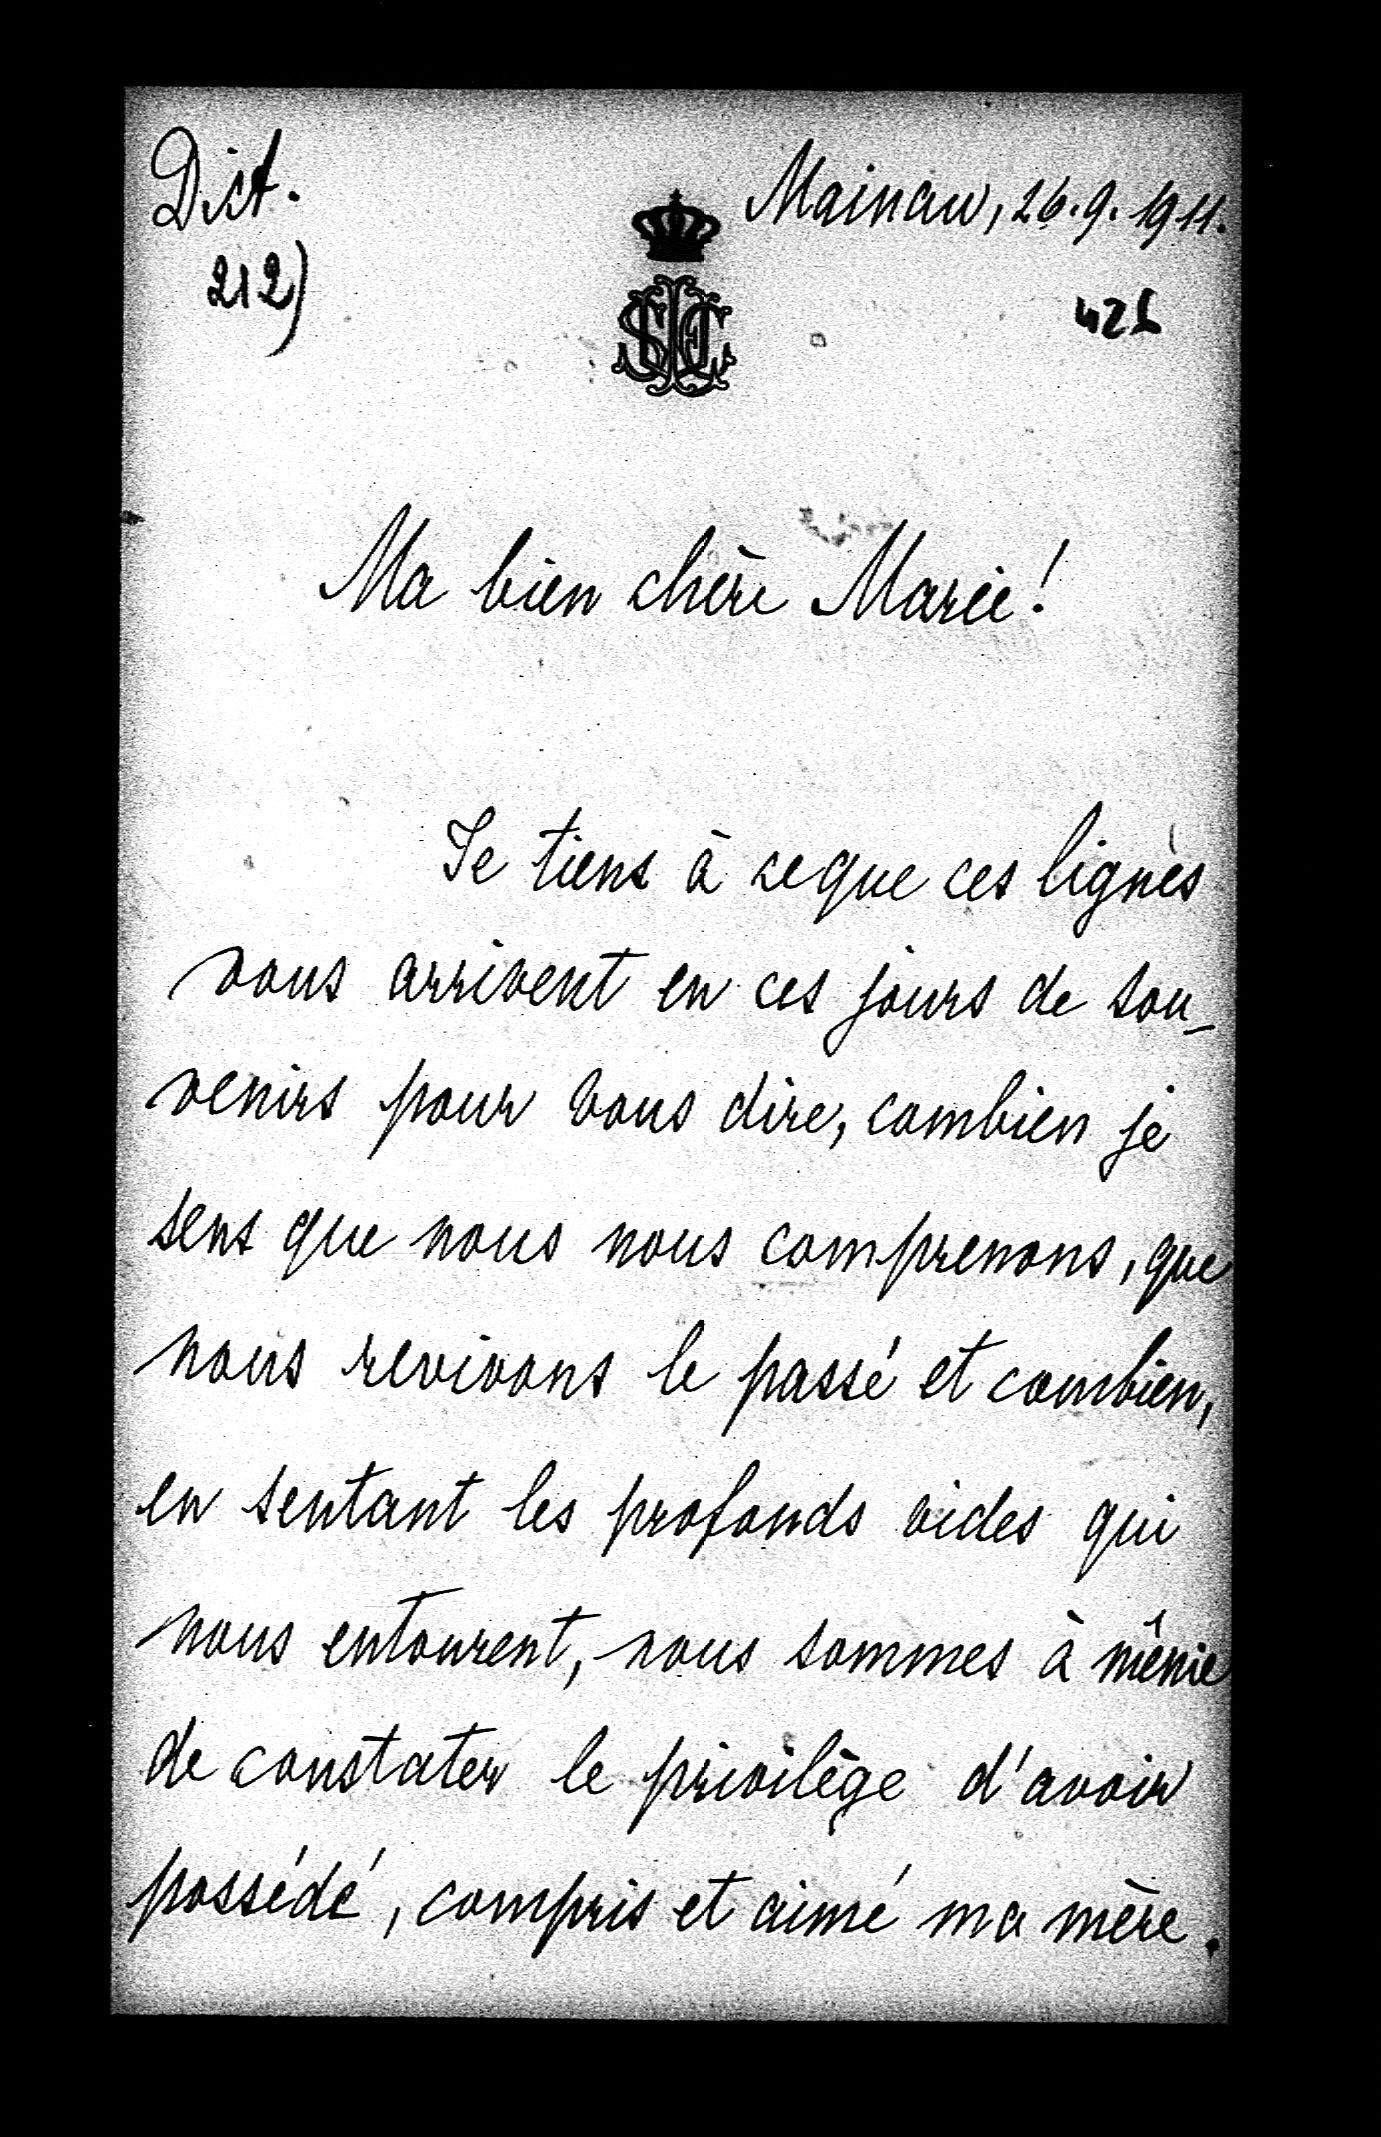 Dict.
Mainau, 26.9.1911.
212)
Ma bien chère Marie!
Je tiens à ceque ces lignes
vous arrivent en ces jours de sou-
venirs pour vous dire, combien je
sens que nous nous comprenons, que
nous revivons le passé et combien,
en sentant les profonds vides qui
nous entourent, nous sommes à même
de constater le privilège d'avoir
possédé, compris et aimé ma mère.